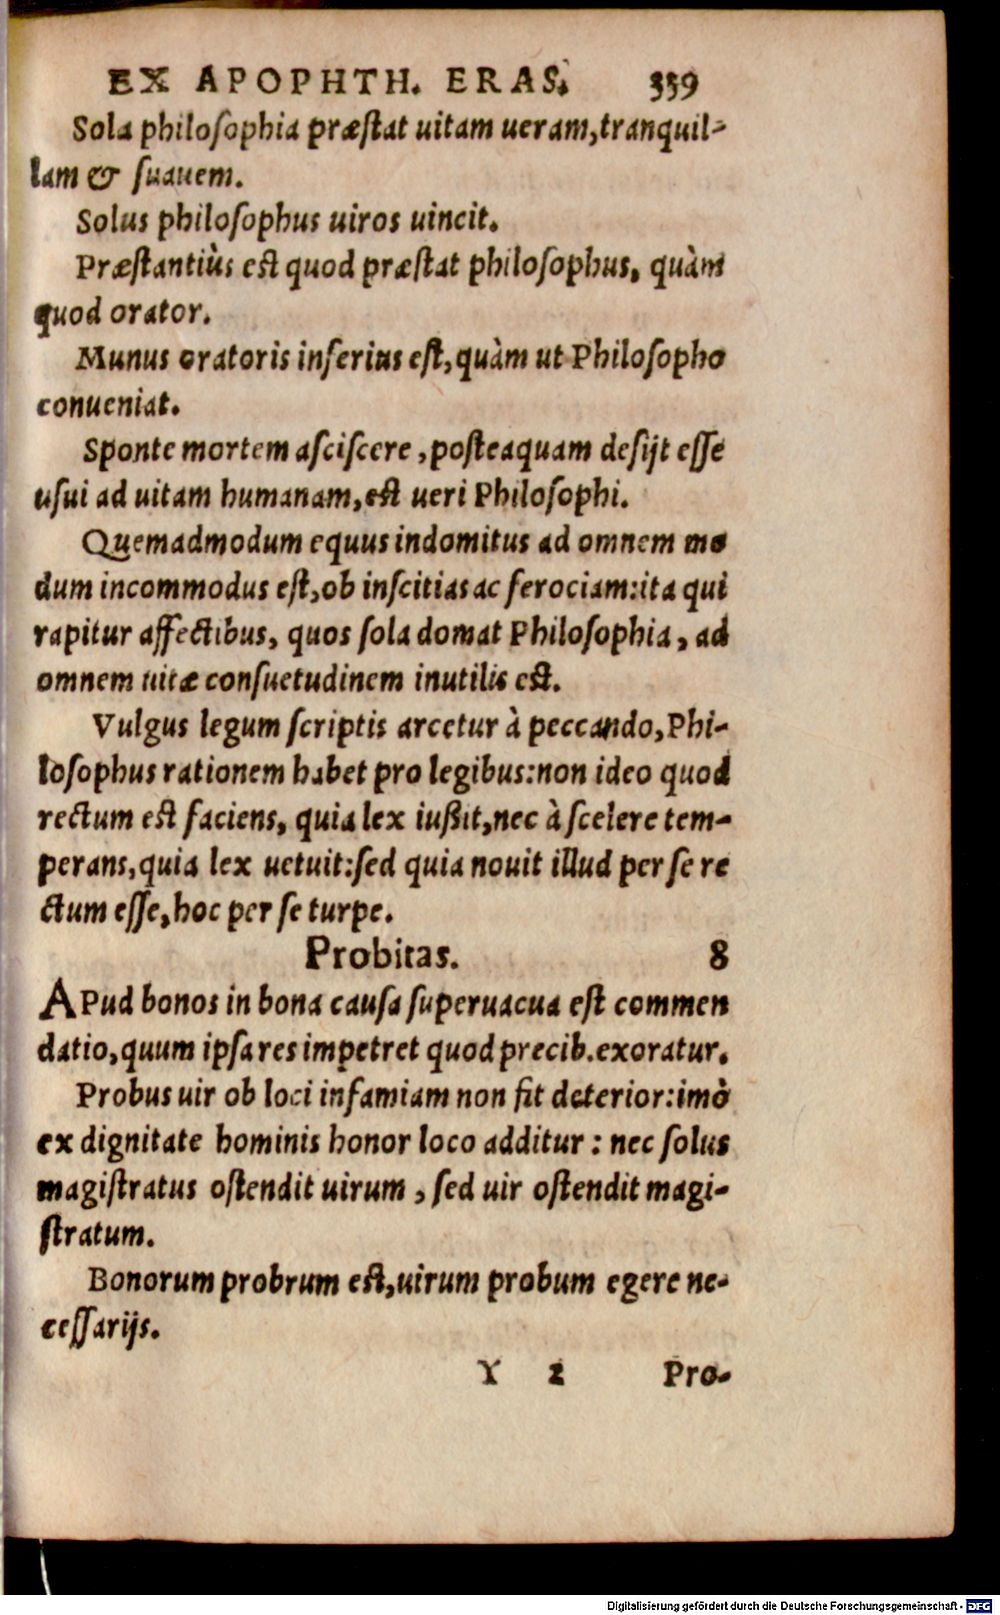 EX APOPHTH. ERAS. 339
Sola philosophia præstat uitam ueram, tranquil-
lam & suauem.
Solus philosophus uiros uincit.
Præstantiùs est quod præstat philosophus, quàm
quod orator.
Munus oratoris inferius est, quàm ut Philosopho
conueniat.
Sponte mortem asciscere, posteaquam desijt esse
usui ad uitam humanam, est ueri Philosophi.
Quemadmodum equus indomitus ad omnem mo
dum incommodus est, ob inscitias ac ferociam: ita qui
rapitur affectibus, quos sola domat Philosophia, ad
omnem uitæ consuetudinem inutilis est.
Vulgus legum scriptis arcetur à peccando, Phi-
losophus rationem habet pro legibus: non ideo quod
rectum est faciens, quia lex iußit, nec à scelere tem-
perans, quia lex uetuit: sed quia nouit illud per se re
ctum esse, hoc per se turpe.
Probitas. 8
APud bonos in bona causa superuacua est commen
datio, quum ipsa res impetret quod precib. exoratur.
Probus uir ob loci infamiam non fit deterior: imò
ex dignitate hominis honor loco additur: nec solus
magistratus ostendit uirum, sed uir ostendit magi-
stratum.
Bonorum probrum est, uirum probum egere ne-
cessarijs.
Y 2 Pro-
Digitalisierung gefördert durch die Deutsche Forschungsgemeinschaft - DFG